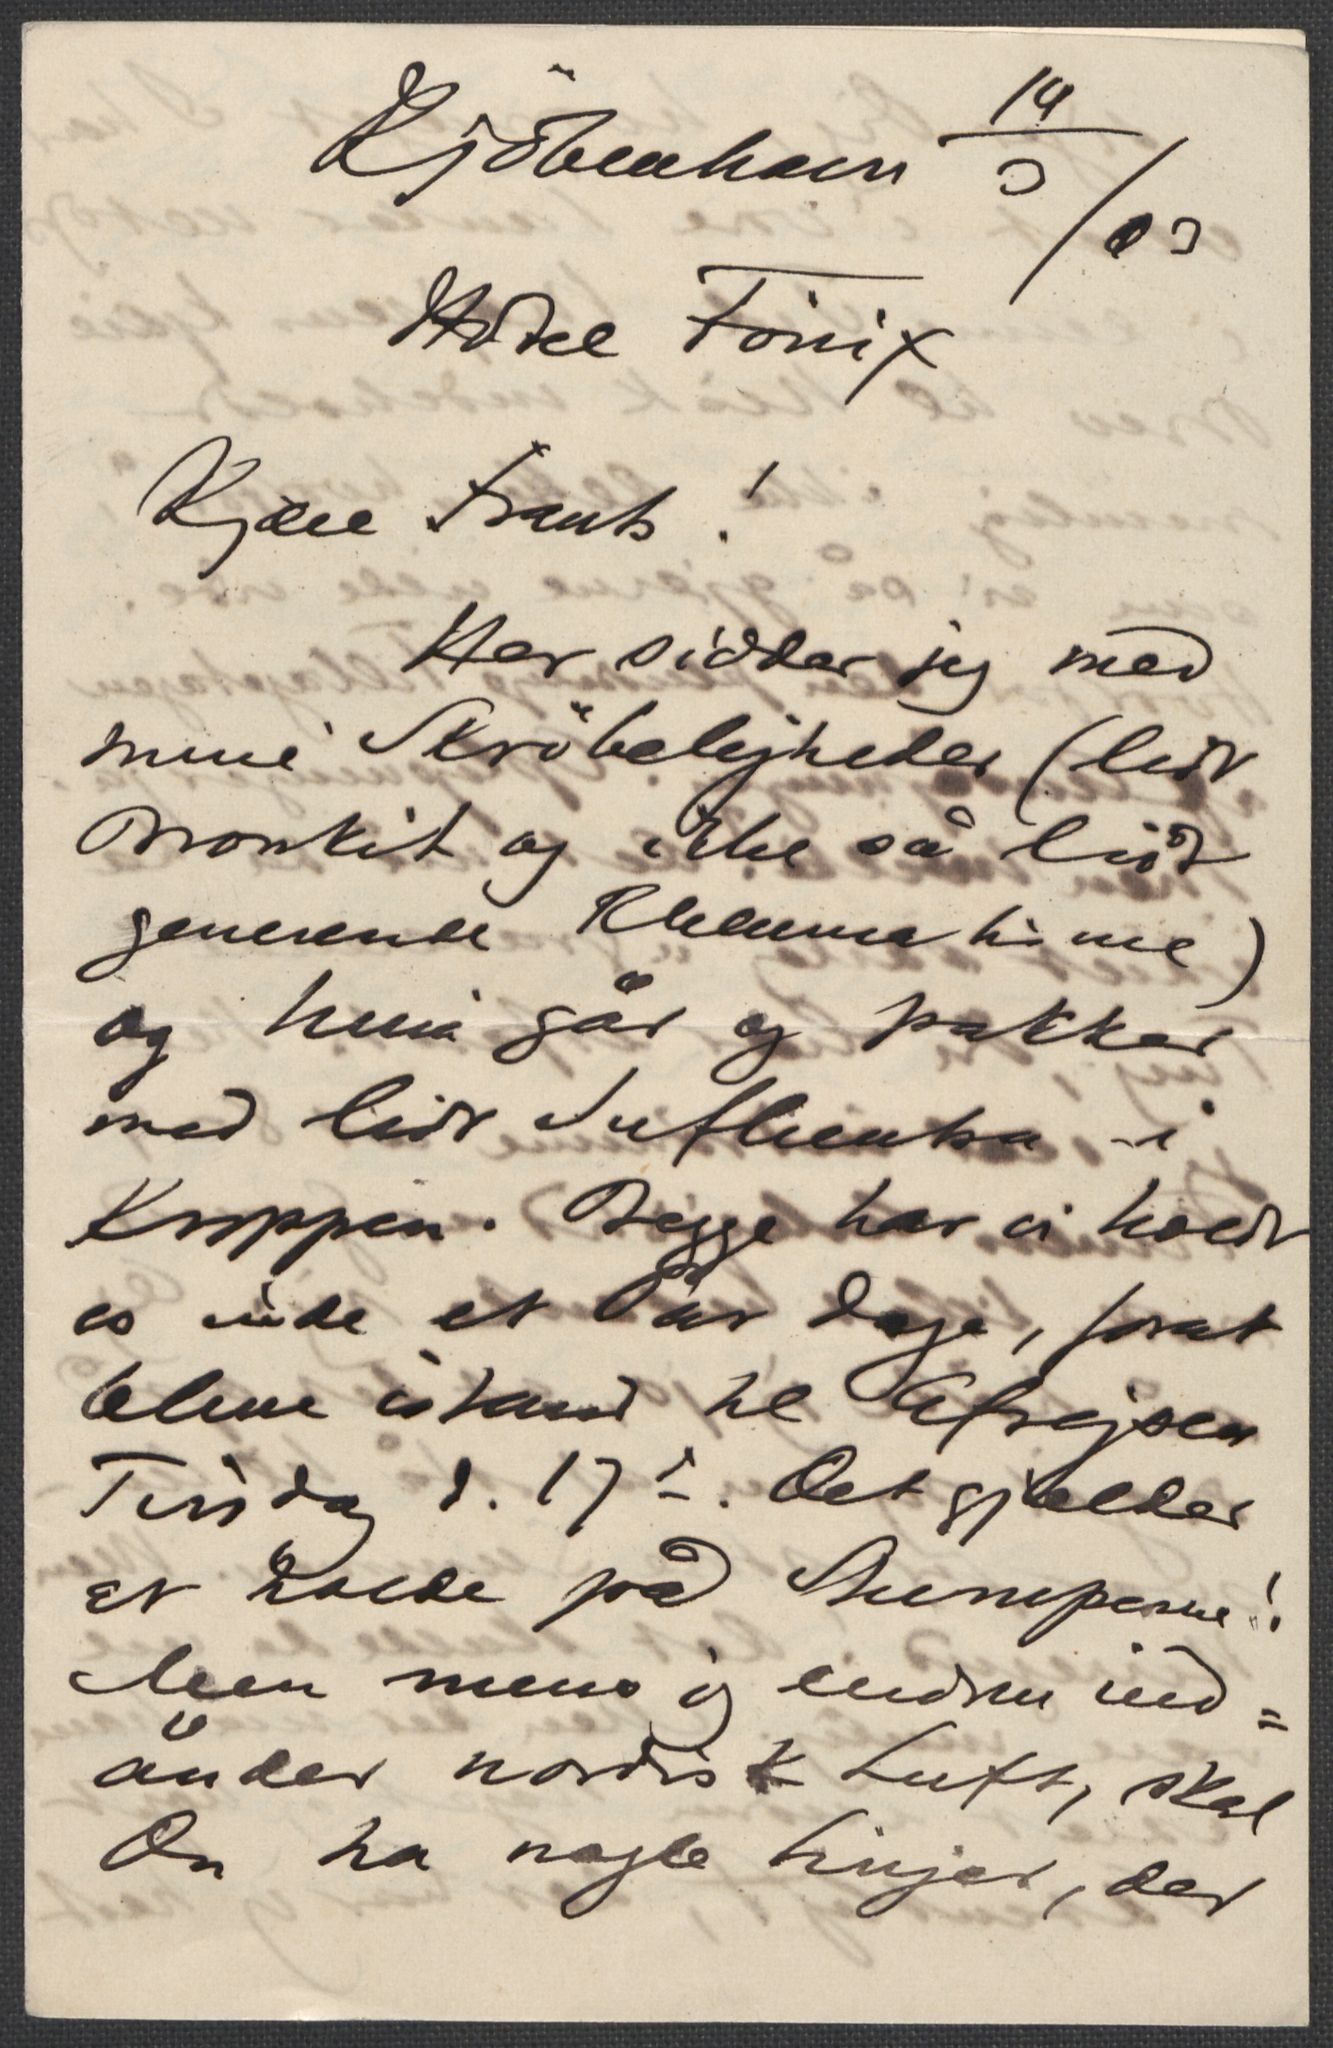 Kjöbenhavn 14/3/03
Hotel Fönix
Kjære Frants!
Her sidder jeg med
mine Skröbeligheder (lidt
Bronkit og ikke så lidt
generende Rheumatisme)
og Nina går og pakker
med lidt Influentsa i
Kroppen. Begge har vi holdt
os inde et Par Dage, forat
blive istand til Afrejsen
Tirsdag d. 17de. Det gjælder
at holde på Stumperne!
Men mens jeg endnu ind=
ånder nordisk Luft, skal
Du ha nogle Linjer, der